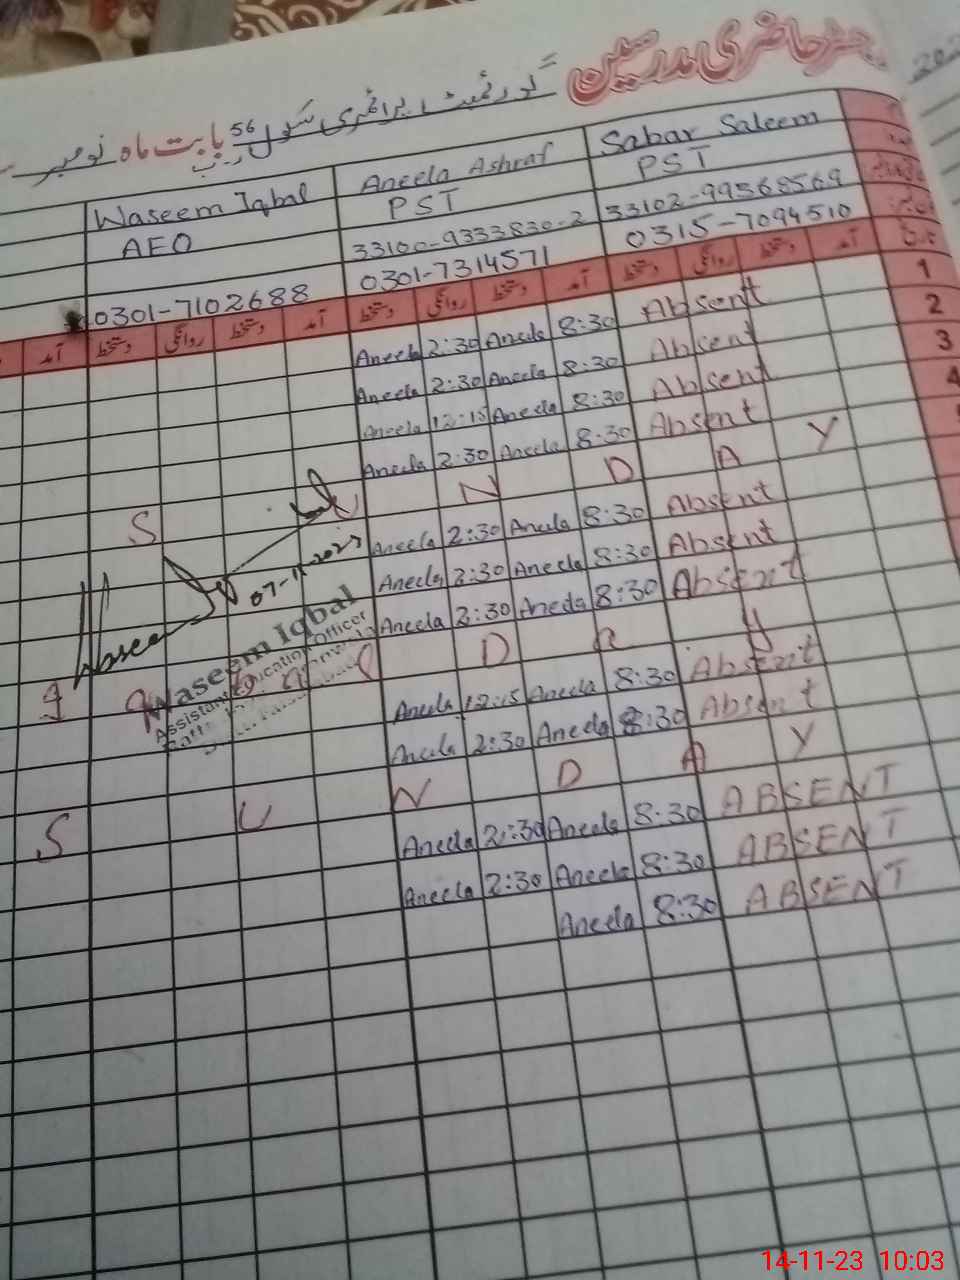 رجسٹر حاضری مدرسین
گورنمنٹ پرائمری سکول 56 بابت ماہ نومبر
Sabar Saleem
Aneela Ashraf
Waseem Iqbal
PST
PST
AEO
33102-99568569
33100-9333830-2
0315-7094510
0301-7314571
0301-7102688
آمد دستخط روانگی دستخط آمد دستخط روانگی دستخط آمد دستخط روانگی دستخط آمد
1
Aneela 2:30 Aneela 8:30 Absent
2
Aneela 2:30 Aneela 8:30 Absent
3
Aneela 12:15 Aneela 8:30 Absent
4
Aneela 2:30 Aneela 8:30 Absent
S U N D A Y
Aneela 2:30 Aneela 8:30 Absent
07-11-2023
Aneela 2:30 Aneela 8:30 Absent
Waseem Iqbal
Assistant Education Officer
Aneela 2:30 Aneela 8:30 Absent
I q b a l D a y
Aneela 12:15 Aneela 8:30 Absent
Aneela 2:30 Aneela 8:30 Absent
S U N D A Y
Aneela 2:30 Aneela 8:30 ABSENT
Aneela 2:30 Aneela 8:30 ABSENT
Aneela 8:30 ABSENT
14-11-23 10:03